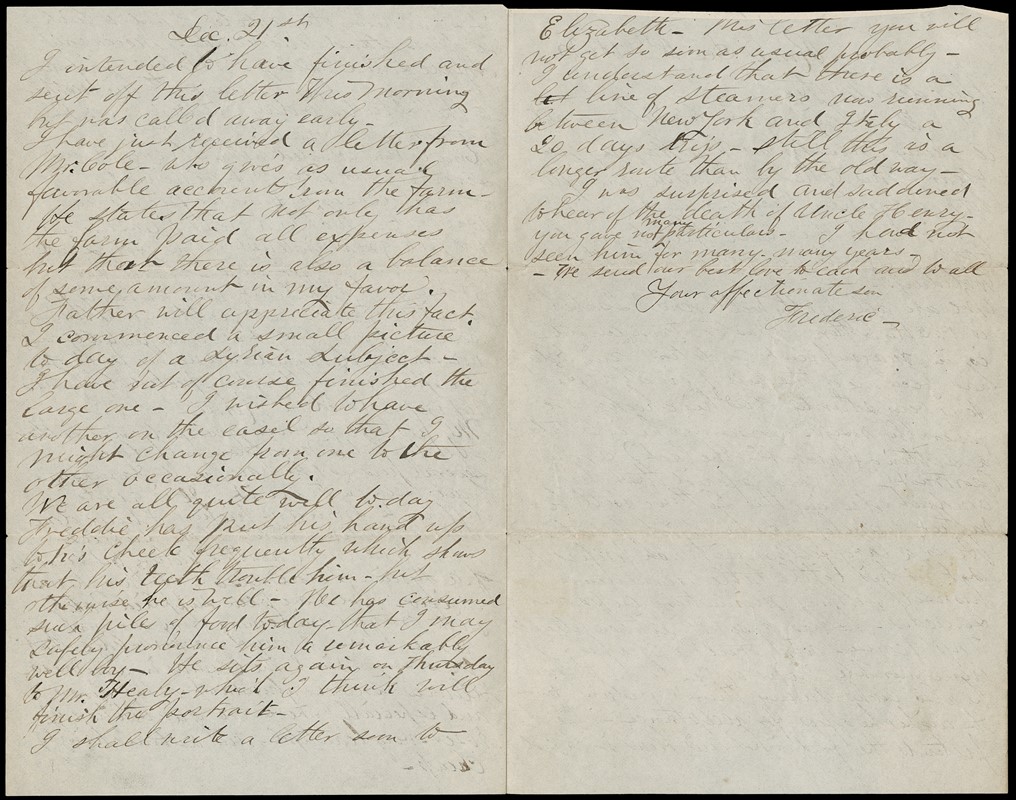 Dec. 21st
I intended to have finished and
sent off this letter this morning
but was call'd away early -
I have just received a letter from
Mr. Cole - who gives as usual
favorable accounts from the farm -
He states that not only has
the farm paid all expenses
but that there is also a balance
of some amount in my favor.
Father will appreciate this fact
I commenced a small picture
to day of a Syrian subject -
I have not of course finished the
large one - I wished to have
another on the easel so that I
might change from one to the
other occasionally.
We are all quite well to day
Freddie has put his hand up
to his cheek frequently which shows
that his teeth trouble him - but
otherwise he is well - He has consumed
such piles of food today that I may
safely pronounce him a remarkably
well boy - He sits again on Thursday
to Mr. Healy - which I think will
finish the portrait -
I shall write a letter soon to
Elizabeth - This letter you will
not get so soon as usual probably -
I understand that there is a
line of steamers now running
between New York and Italy a
20 days trip - still this is a
longer route than by the old way -
I was surprised and saddened
to hear of the death of Uncle Henry -
you gave not many particulars - I had not
seen him for many, many years -
- We send our best love to each and to all
Your affectionate son
Frederic -